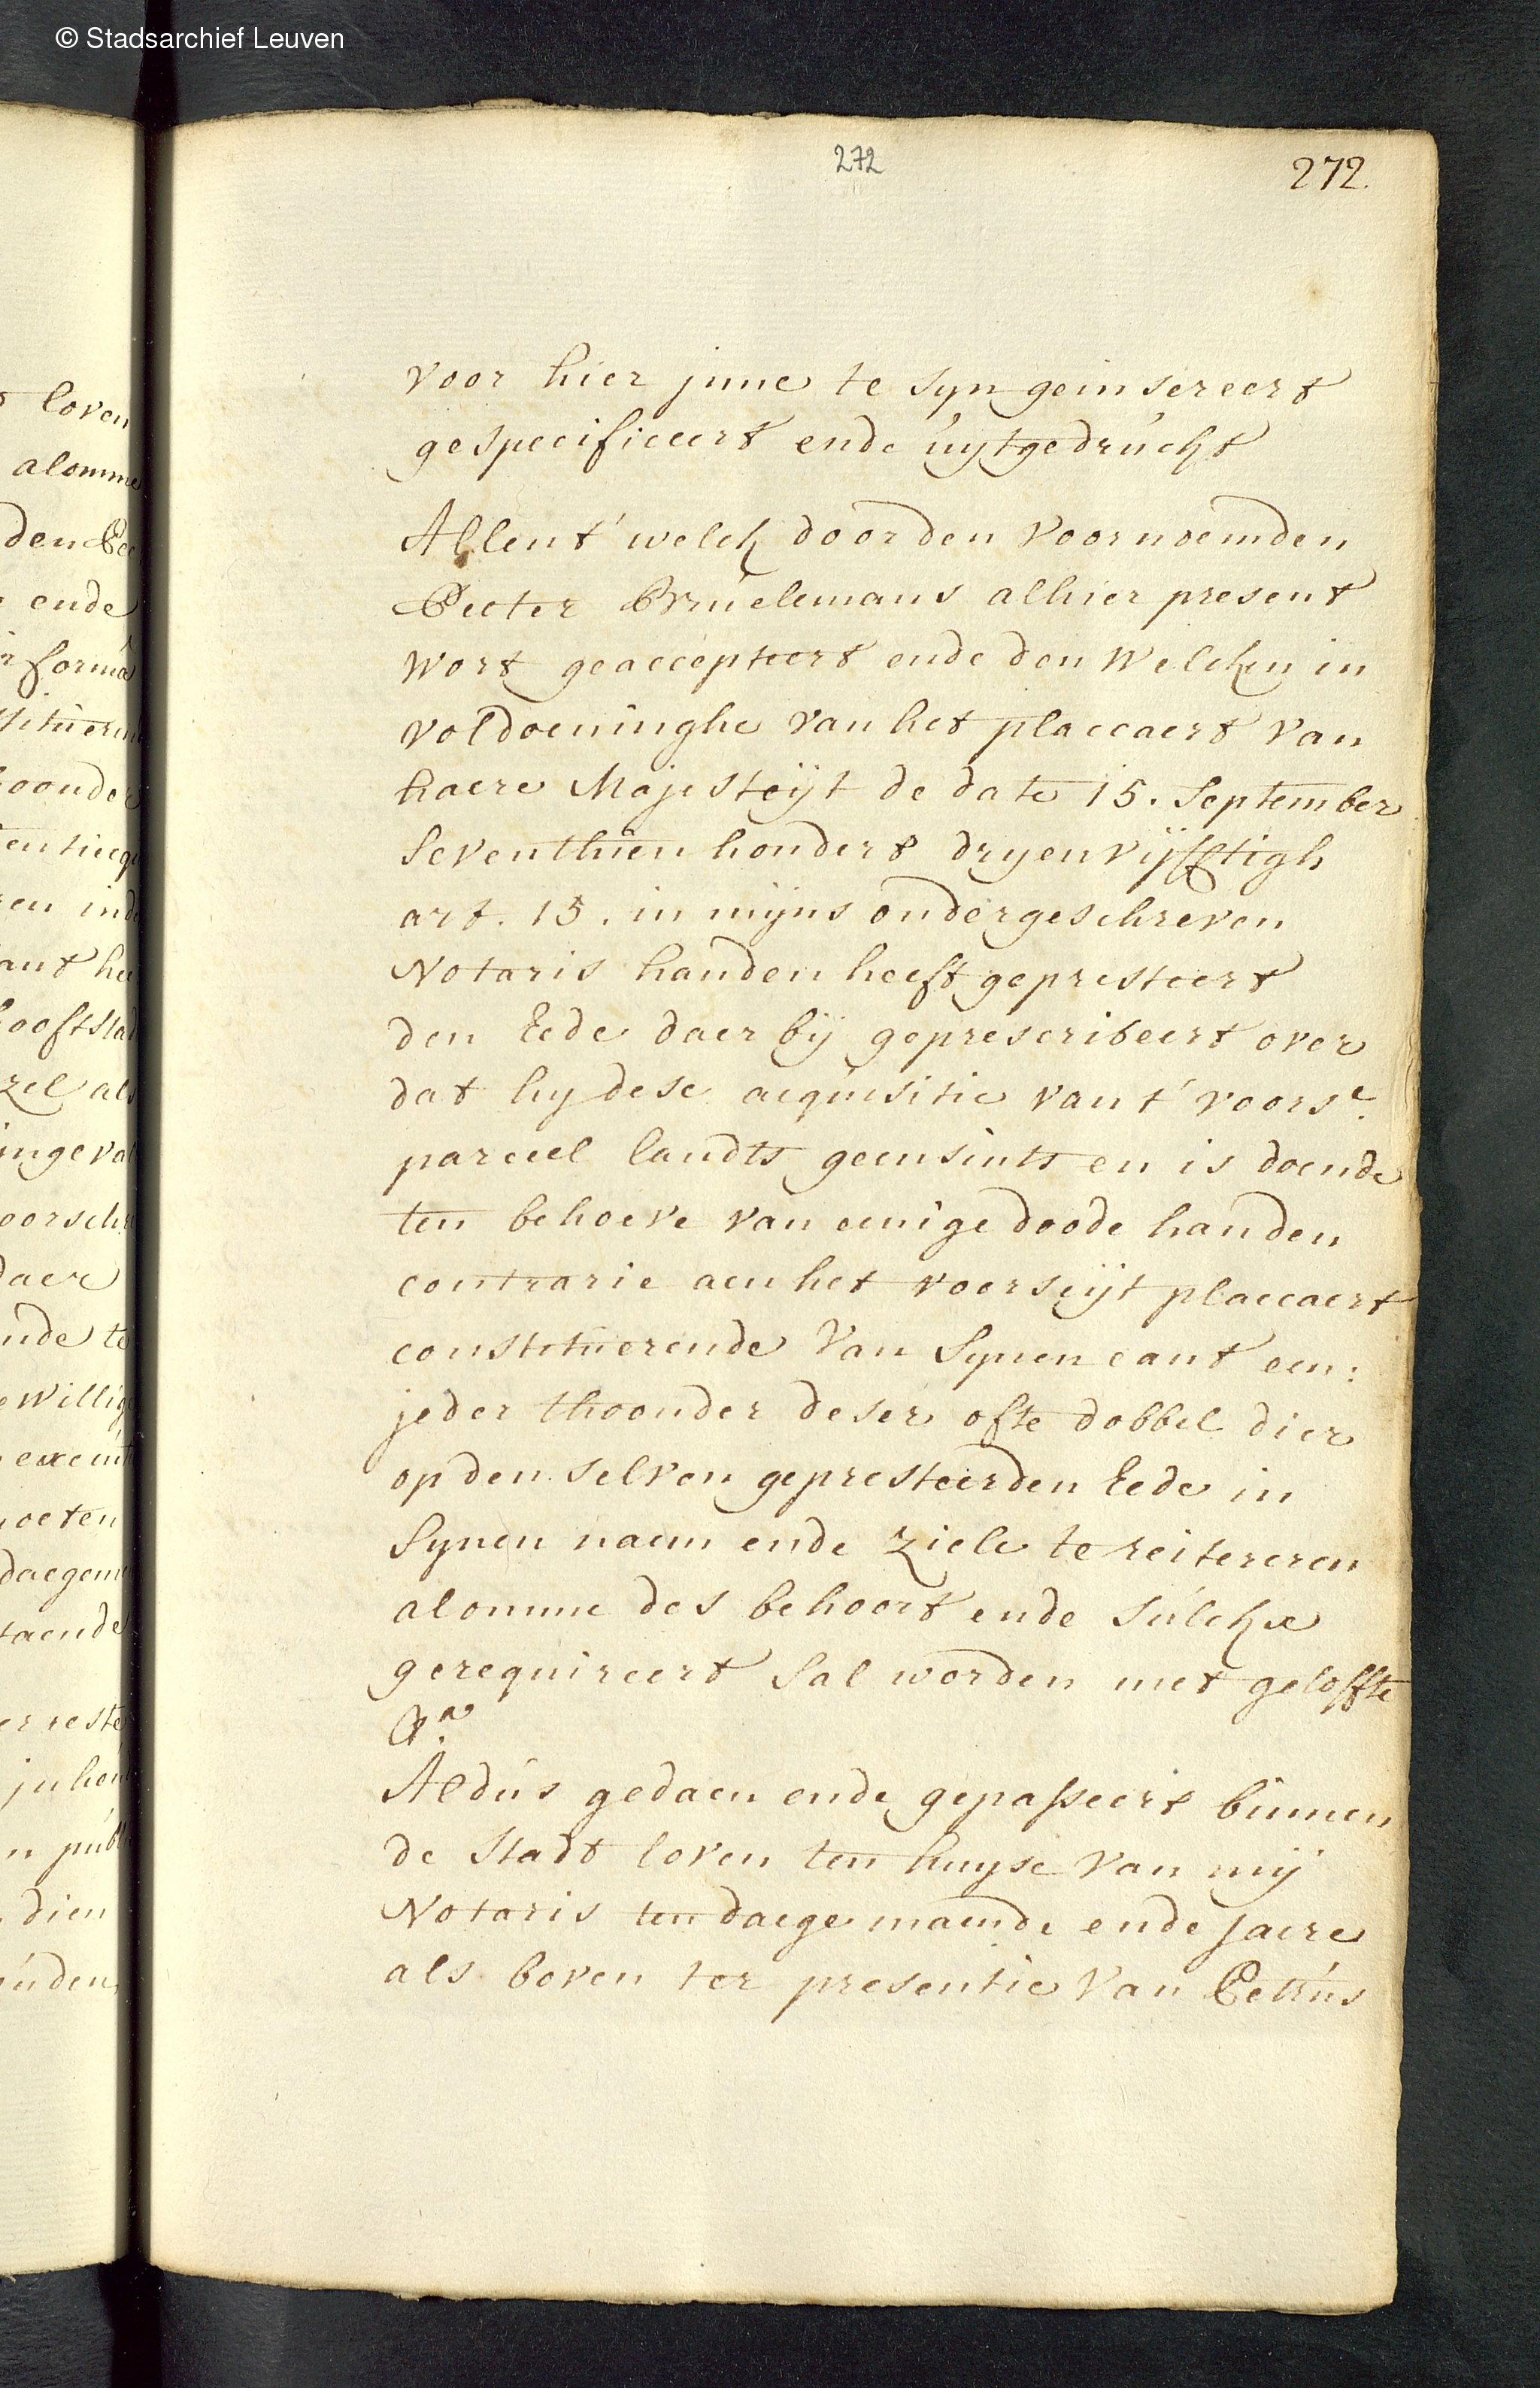 © Stadsarchief Leuven
272
272.
loven
alomme
den
ende
forma
voor hier jnne te syn geinsereert
gespecificeert ende uytgedruckt
Allent' welck door den voornoemden
Peeter Bruelemans alhier present
wort geaccepteert ende den welcken in
voldoeninghe van het placcaert van
haere Majesteyt de date 15. September
seventhien hondert dryenvijfftigh
art. 15. in mijns ondergeschreven
Notaris handen heeft gepresteert
den Eede daer bij geprescribeert over
dat hy dese acquisitie van t' voors.e
parceel landts geensints en is doende
ten behoeve van eenige doode handen
contrarie aen het voorseyt placcaert
constituerende van synen cant een:
jeder thoonder deser ofte dobbel dier
op den selven gepresteerden Eede in
synen naem ende ziele te reitereren
alomme des behoort ende sulckx
gerequireert sal worden met geloffte
Aldus gedaen ende gepasseert binnen
de stadt loven ten huyse van mij
Notaris ten daege maende ende jaere
als boven ter presentie van Petrus